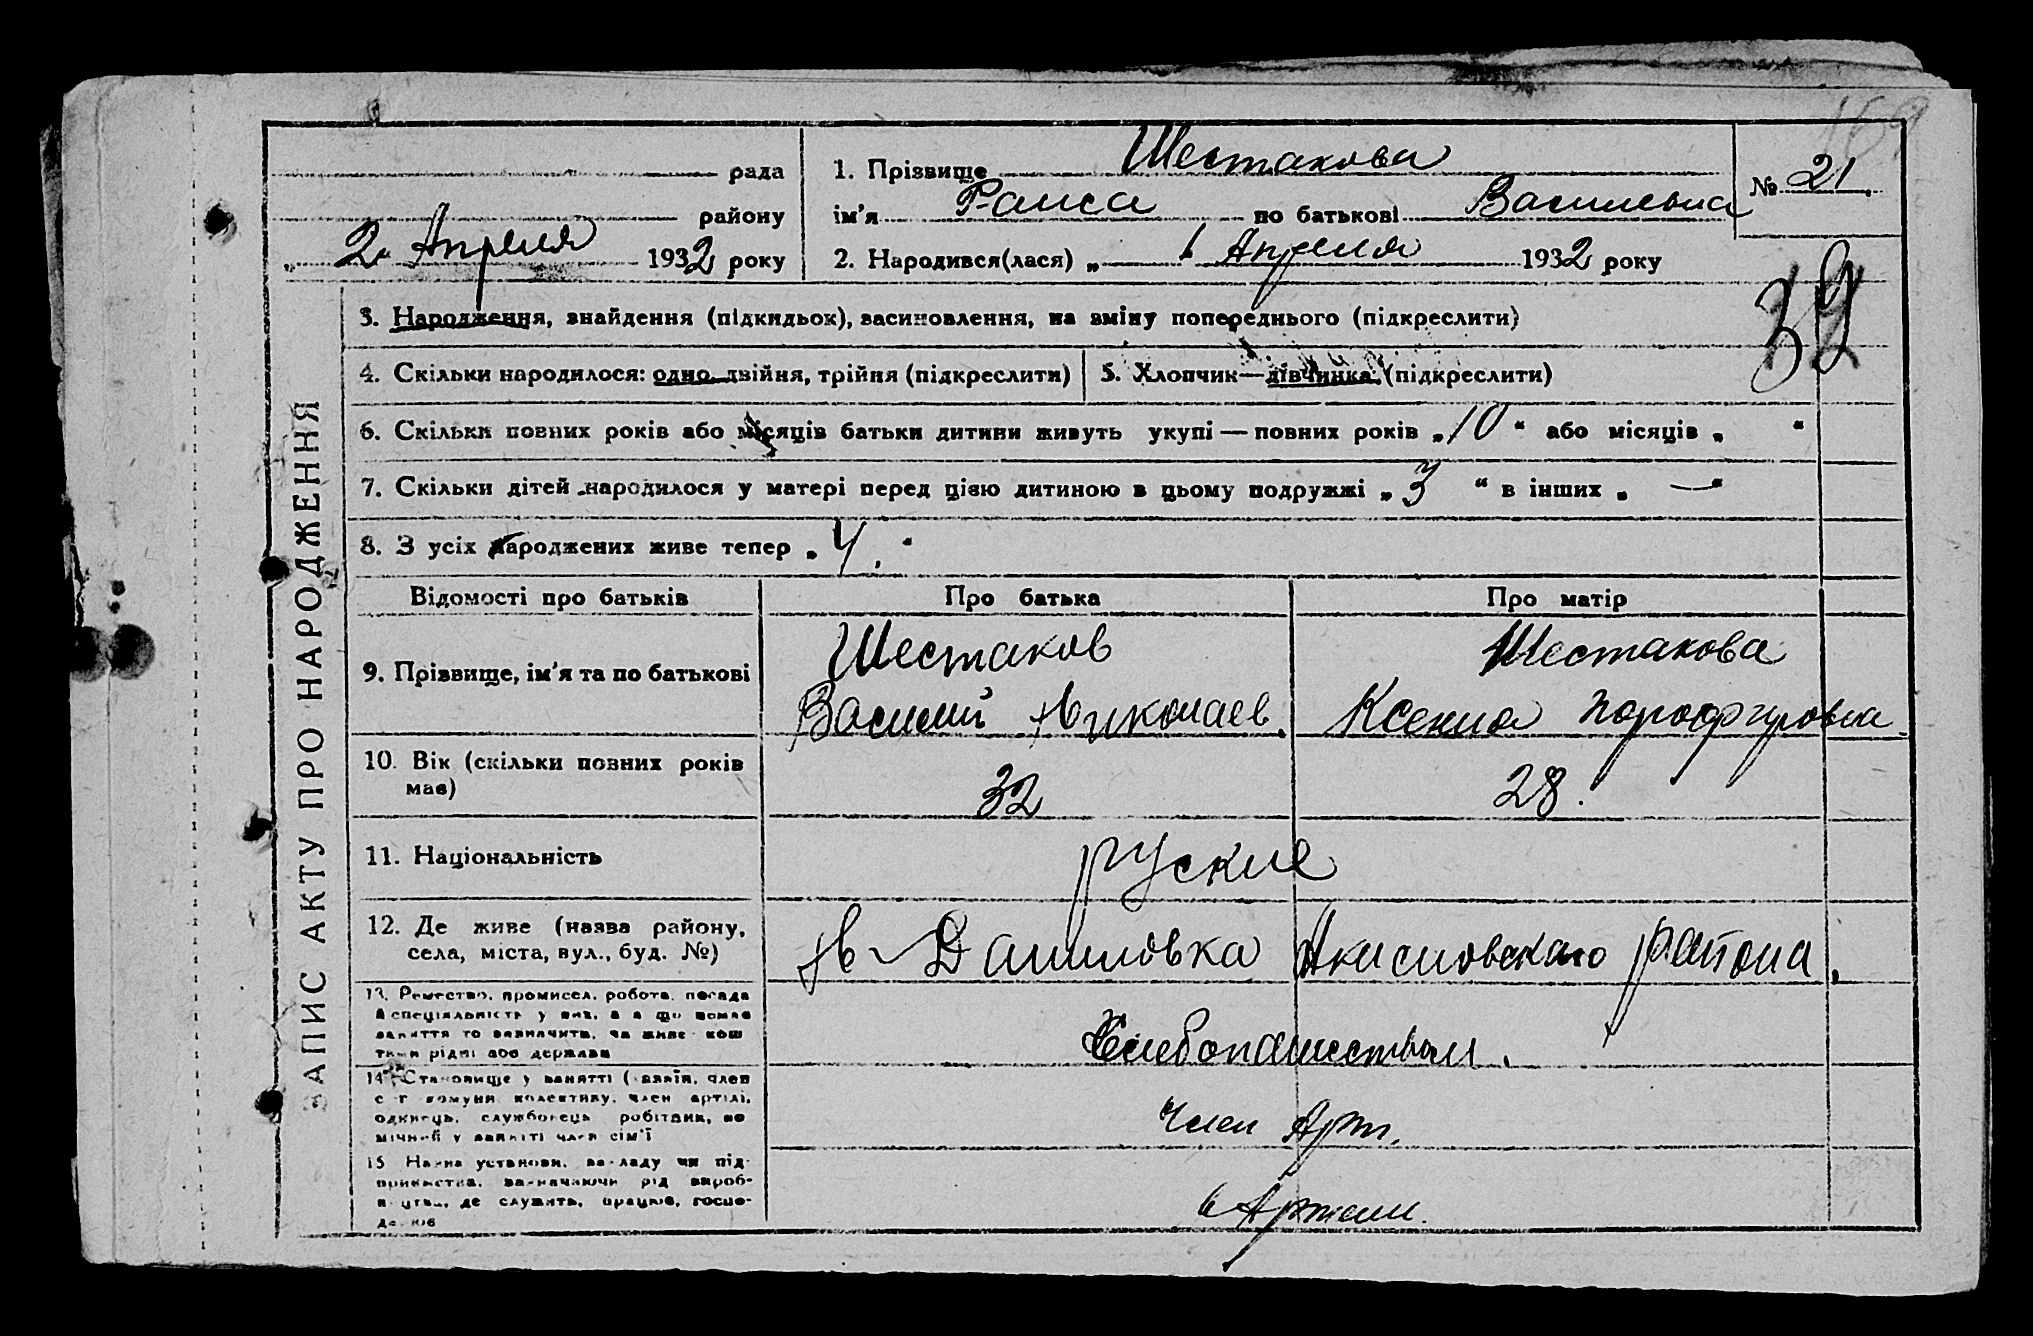 169
рада
1. Прізвище Шестакова
№ 21.
району
ім'я Раиса по батькові Васильевна
„ 2. Апреля 1932 року
2. Народився(лася) „ 1 Апреля 1932 року
39
3. Народження, знайдення (підкидьок), засиновлення, на зміну попереднього (підкреслити)
4. Скільки народилося: одно, двійня, трійня (підкреслити)
5. Хлопчик—дівчинка (підкреслити)
6. Скільки повних років або місяців батьки дитини живуть укупі — повних років „10“ або місяців „ “
7. Скільки дітей народилося у матері перед цією дитиною в цьому подружжі „3“ в інших „—“
8. З усіх народжених живе тепер „4.“
ЗАПИС АКТУ ПРО НАРОДЖЕННЯ
Відомості про батьків
Про батька
Про матір
9. Прізвище, ім'я та по батькові
Шестаков
Василий Николаев.
Шестакова
Ксения Порфировна
10. Вік (скільки повних років
має)
32
28.
11. Національність
руские
12. Де живе (назва району,
села, міста, вул., буд. №)
Н-Даниловка Акимовского района.
13. Ремество, промисел, робота, посада
й спеціяльність у них, а як що немає
заняття то зазначити, чи живе кош
тами рідні або держави
Хлебопашеством.
14. Становище у занятті (хазяїн, член
с-г комуни, колективу, член артілі,
одинець, службовець, робітник, по
мічний у занятті член сім'ї
Член Арт.
15. Назва установи, закладу чи під-
приємства, зазначаючи рід вироб-
ництва, де служить, працює, госпо-
дарює
в Артели.